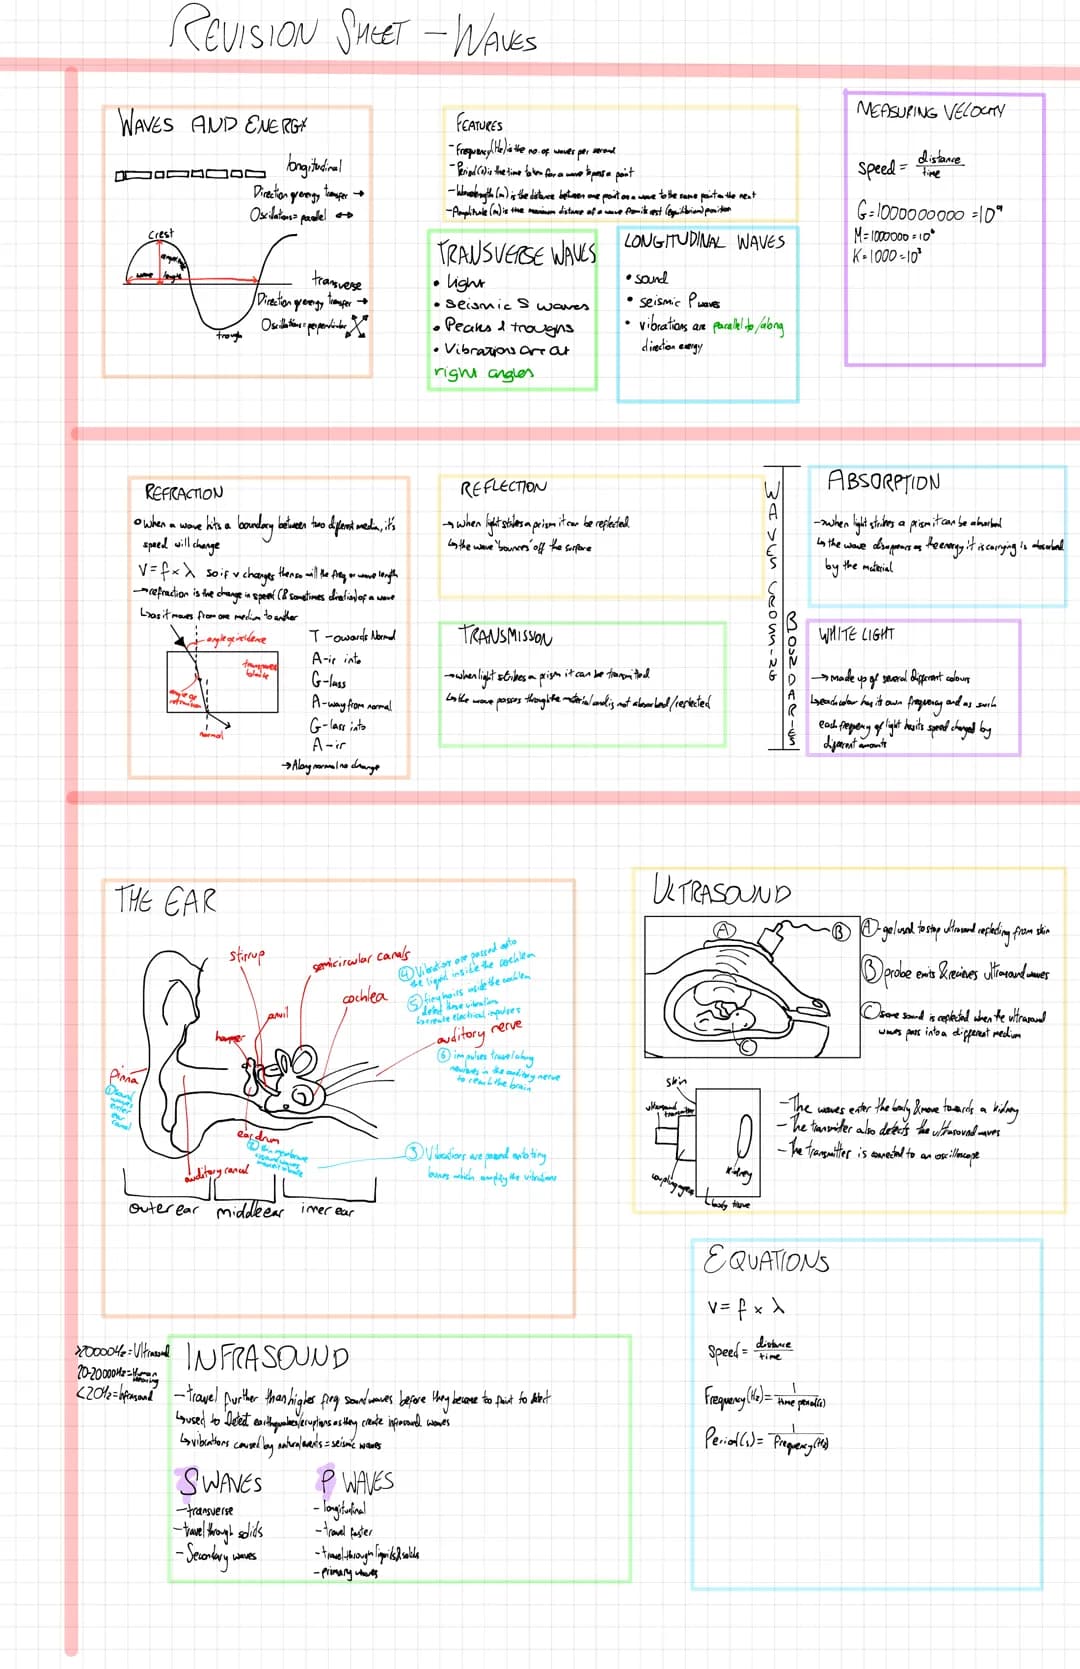 REVISION SHEET - WAVES
WAVES AND ENERGY
longitudinal
Direction of energy transfer →
Oscillations = parallel ↔
crest
wave length
transverse
Direction of energy transfer →
Oscillations = perpendicular
trough
FEATURES
- Frequency (Hz) is the no. of waves per second
- Period (s) is the time taken for a wave to pass a point
- Wavelength (m) is the distance between one point on a wave to the same point on the next
- Amplitude (m) is the maximum distance of a wave from its rest (equilibrium) position
TRANSVERSE WAVES
• light
• seismic S waves
• Peaks & troughs
• Vibrations are at
right angles
LONGITUDINAL WAVES
• sound
• seismic P waves
• vibrations are parallel to/along
direction energy
MEASURING VELOCITY
speed = distance/time
G = 1000000000 = 10⁹
M = 1000000 = 10⁶
K = 1000 = 10³
REFRACTION
• when a wave hits a boundary between two different media, it's
speed will change
V = f × λ so if v changes then so will the freq or wave length
→ refraction is the change in speed (& sometimes direction) of a wave
↳ as it moves from one medium to another
angle of incidence
angle of refraction
normal
T-owards Normal
A-ir into
G-lass
A-way from normal
G-lass into
A-ir
→ Along normal no change
REFLECTION
→ when light strikes a prism it can be reflected
↳ the wave 'bounces' off the surface
TRANSMISSION
→ when light strikes a prism it can be transmitted
↳ the wave passes through the material and is not absorbed/reflected
WAVES CROSSING
BOUNDARIES
ABSORPTION
→ when light strikes a prism it can be absorbed
↳ the wave disappears as the energy it is carrying is absorbed
by the material
WHITE LIGHT
→ made up of several different colours
↳ each colour has its own frequency and as such
each frequency of light has its speed changed by
different amounts
THE EAR
stirrup
semicircular canals
cochlea
anvil
hammer
auditory nerve
pinna
① sound waves enter ear canal
ear drum
auditory canal
④ Vibrations are passed onto
the liquid inside the cochlea
⑤ tiny hairs inside the cochlea
detect these vibrations
& create electrical impulses
⑥ impulses travel along
neurones in the auditory nerve
to reach the brain
③ Vibrations are passed onto tiny
bones which amplify the vibrations
outer ear
middle ear
inner ear
ULTRASOUND
A
B
C
A - gel used to stop ultrasound reflecting from skin
B probe emits & recieves ultrasound waves
C some sound is reflected when the ultrasound
waves pass into a different medium
skin
ultrasound transmitter
coupling gel
kidney
body tissue
- The waves enter the body & move towards a kidney
- The transmitter also detects the ultrasound waves
- The transmitter is connected to an oscilloscope
>20000Hz = Ultrasound
20-20000Hz = Human hearing
<20Hz = Infrasound
INFRASOUND
- travel further than higher freq sound waves before they become too faint to detect
↳ used to detect earthquakes/eruptions as they create infrasound waves
↳ vibrations caused by natural events = seismic waves
S WAVES
- transverse
- travel through solids
- Secondary waves
P WAVES
- longitudinal
- travel faster
- travel through liquids & solids
- primary waves
EQUATIONS
V = f × λ
Speed = distance/time
Frequency (Hz) = 1/time period(s)
Period (s) = 1/Frequency (Hz)